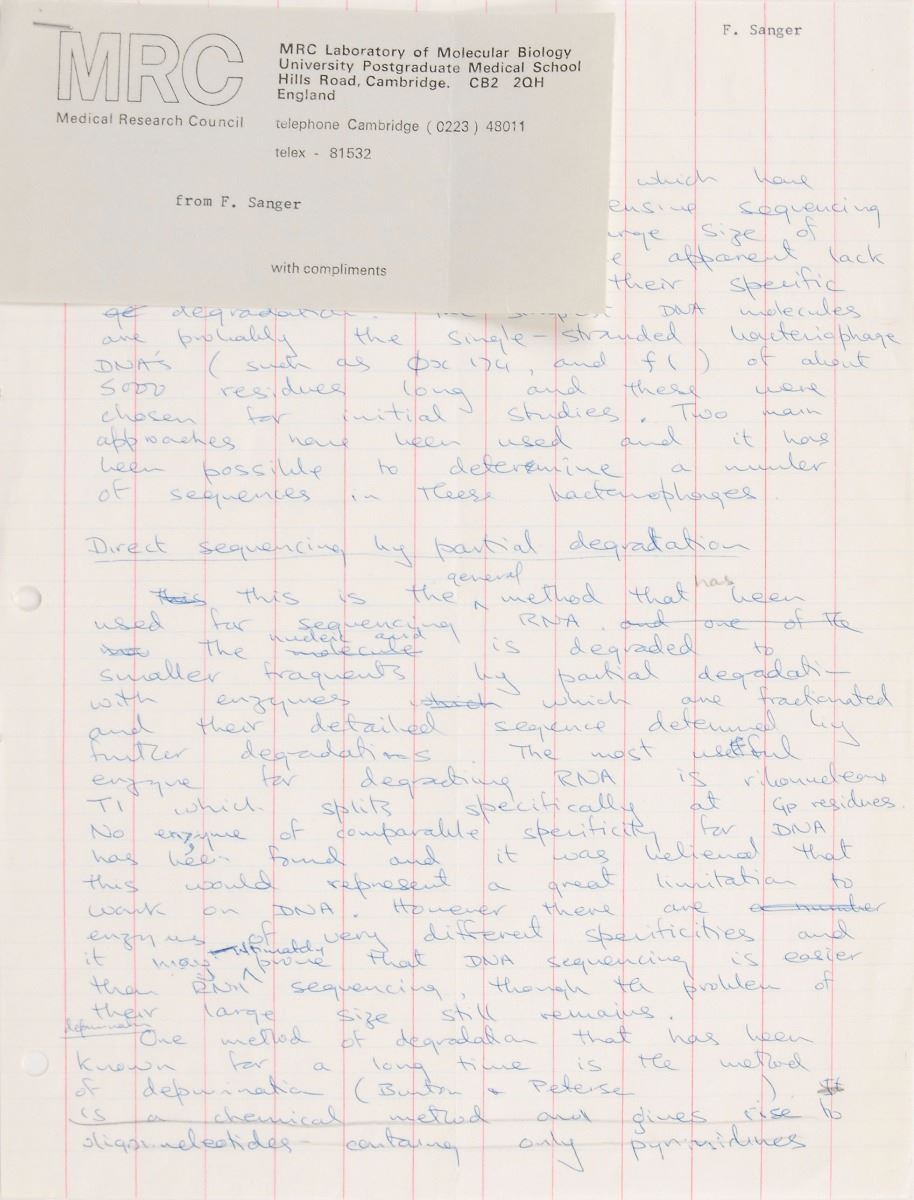 F. Sanger
MRC
Medical Research Council
MRC Laboratory of Molecular Biology
University Postgraduate Medical School
Hills Road, Cambridge. CB2 2QH
England
telephone Cambridge (0223) 48011
telex - 81532
from F. Sanger
with compliments
which have
ensive sequencing
arge size of
e apparent lack
their specific
of degradation. The simplest DNA molecules
are probably the single-stranded bacteriophage
DNA's (such as ΦX 174, and f1) of about
5000 residues long and these were
chosen for initial studies. Two main
approaches have been used and it has
been possible to determine a number
of sequences in these bacteriophages.
Direct sequencing by partial degradation
general has
this this is the method that been
used for sequencing RNA. and one of the
nucleic acid
The molecule is degraded to
smaller fragments by partial degradation
with enzymes which which are fractionated
and their detailed sequence determined by
further degradations. The most useful
enzyme for degrading RNA is ribonuclease
T1 which splits specifically at Gp residues.
No enzyme of comparable specificity for DNA
has been found and it was believed that
this would represent a great limitation to
work on DNA. However there are a number
enzymes of very different specificities and
ultimately
it may prove that DNA sequencing is easier
than RNA sequencing, though the problem of
their large size still remains.
depurination
One method of degradation that has been
known for a long time is the method
of depurination (Burton & Peterse ) It
is a chemical method and gives rise to
oligonucleotides containing only pyrimidines